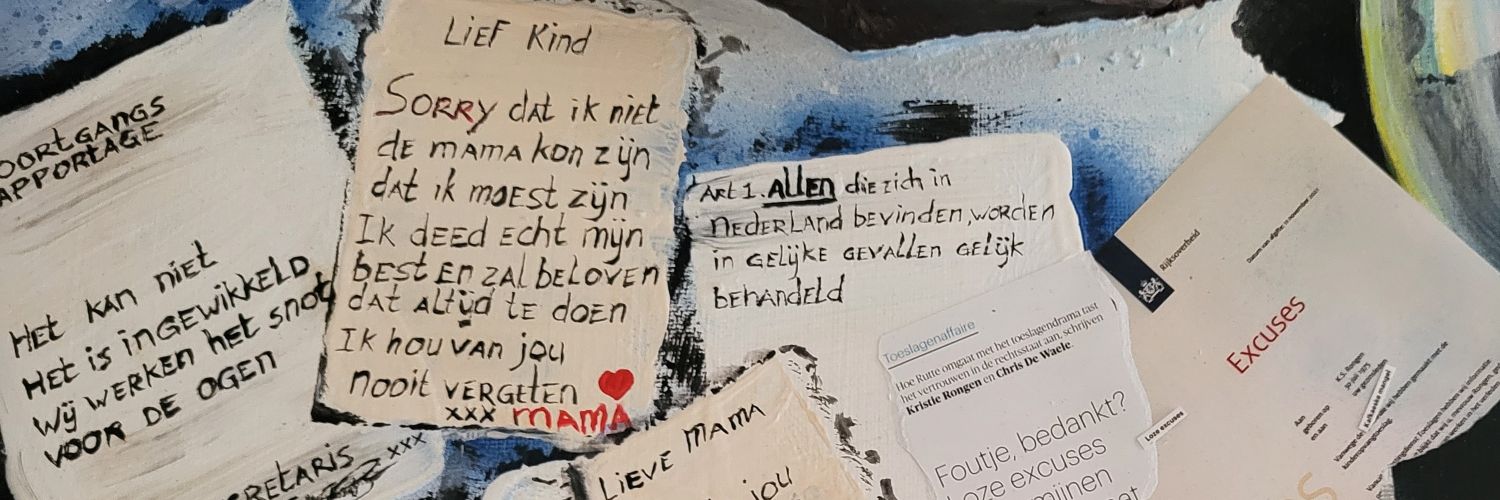 OORTGANGS
APPORTAGE
HET KAN niet
HET is inGEWIKKELD
Wij WERKEN het snot
VOOR DE OGEN
RETARIS xxx
LIEF Kind
SORRY dat ik niet
de mama kon zijn
dat ik moest zijn
Ik deed echt mijn
best en zal beloven
dat altijd te doen
Ik hou van jou
nooit vergeten
xxx mama
Art 1. Allen die zich in
NEDERLAND bevinden, worden
in gelijke gevallen gelijk
behandeld
LIEVE MAMA
jou
Toeslagenaffaire
Hoe Rutte omgaat met het toeslagendrama tast
het vertrouwen in de rechtsstaat aan, schrijven
Kristie Rongen en Chris De Waele.
Foutje, bedankt?
Loze excuses
mijnen
Loze excuses
Rijksoverheid
Excuses
K.S. Rongen
Aan